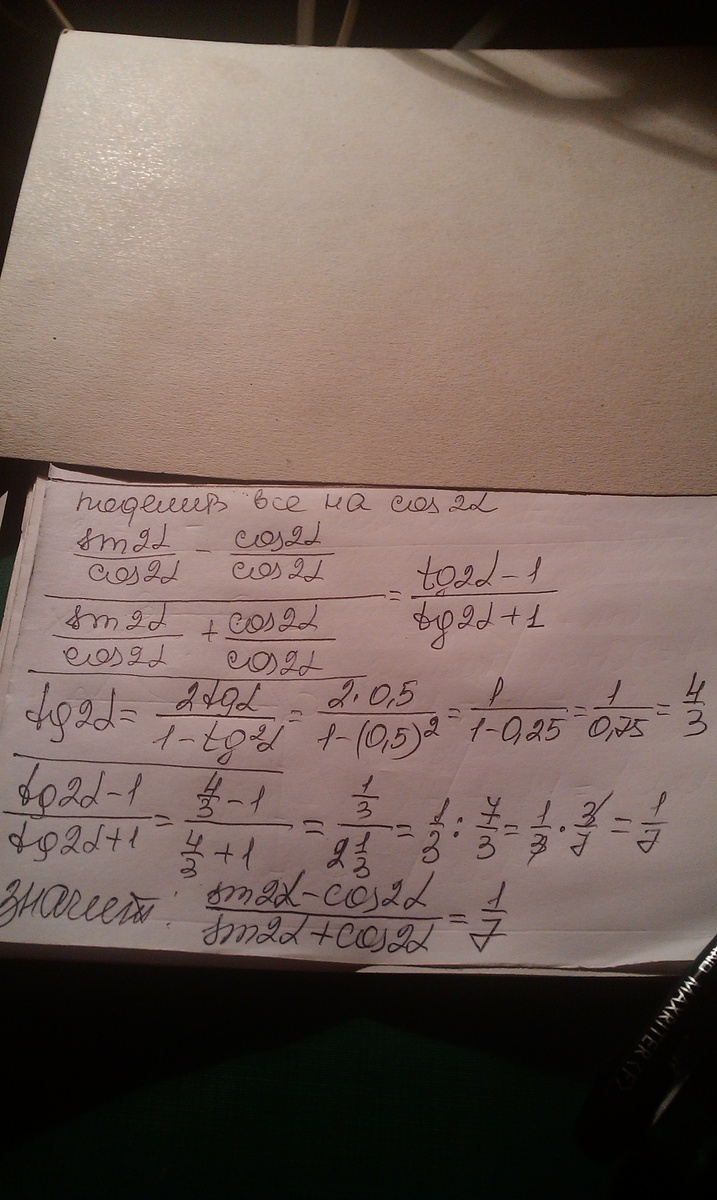 поделив все на cos2α
(sin2α/cos2α - cos2α/cos2α)/(sin2α/cos2α + cos2α/cos2α) = (tg2α-1)/(tg2α+1)
tg2α = 2tgα/(1-tg²α) = 2·0,5/(1-(0,5)²) = 1/(1-0,25) = 1/0,75 = 4/3
(tg2α-1)/(tg2α+1) = (4/3-1)/(4/3+1) = (1/3)/(2 1/3) = 1/3 : 7/3 = 1/3 · 3/7 = 1/7
значит: (sin2α-cos2α)/(sin2α+cos2α) = 1/7
MAXRITER